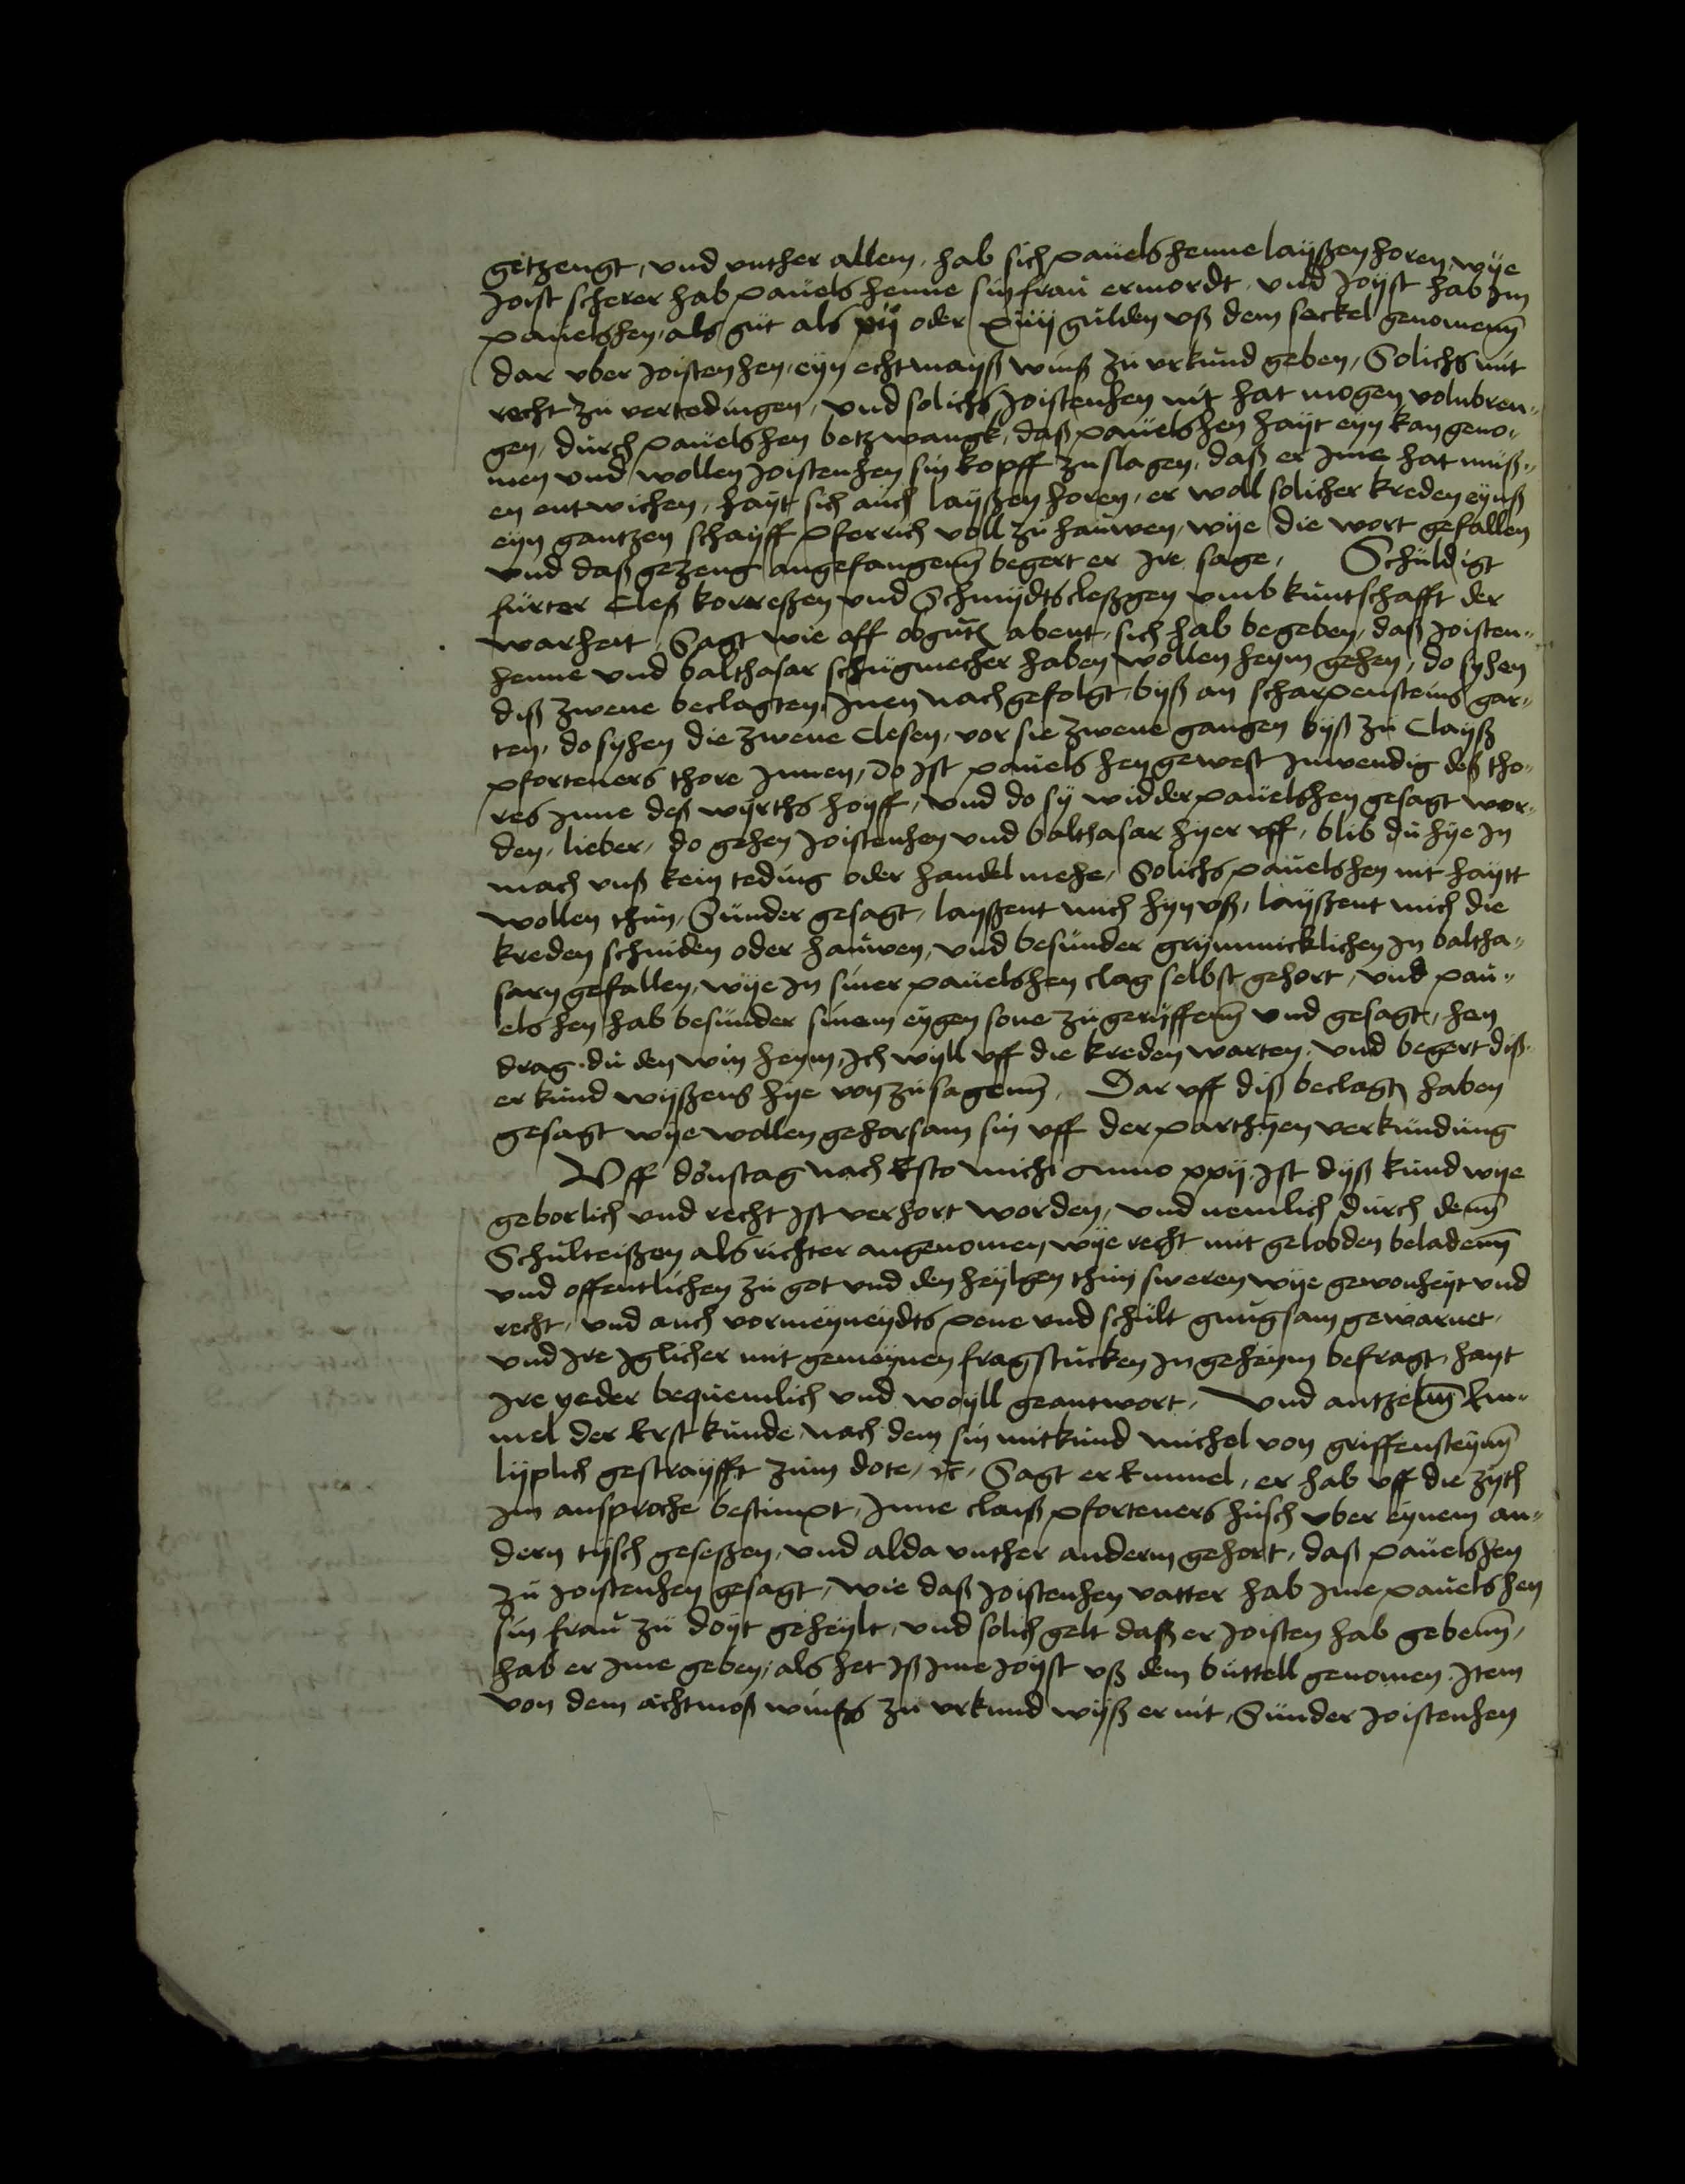 getzengt, und unther allem, hab sich pauels henne layßen horen, wye
Joist scherer hab pauels henne sin frau ermordt, und Joyst hab Im
pauelshen, als gut als xij oder xiiij gulden uß dem seckel genomenn
dar uber Joistenhen, eyn echtmayß winß zu urkund geben, Solichs mit
recht zu vertedingen, und solichs Joistenhen nit hat mogen volnbren„
gen, durch pauelshen betzwangk, daß pauelshen hayt eyn kan geno„
men und wollen Joistenhen sin kopff zuslagen, daß er Ime hat muß„
en entwichen, hayt sich auch layßen horen, er woll solicher kreden eynß
eyn gantzen schayff pferrich voll zu hauwen, wye die wort gefallen
und daß gezeug angefangenn begert er Ire sage, Schuldigt
furter Cleß korreßen und Schmydts cleßgen umb kuntschafft der
warheit, Sagt wie off obgutem abent, sich hab begeben, daß Joisten„
henne und balthasar schugmecher haben wollen heym gehen, do syhen
diß zwene beclagten Inen nachgefolgt byß an scharpensteins gar„
ten, do syhen die zwene Clesen, vor sie zwene gangen byß zu Clayß
pforteners thore Innen, do Ist pauels hen gewest Inwendig deß tho„
res Inne deß wyrths hoyff, und do sy widder pauelshen gesagt wor„
den, lieber, do gehen Joistenhen und balthasar hyer uff, blib du hye In
mach unß kein teding oder handel mehe, Solichs pauelshen nit haytt
wollen thun, Sunder gesagt, layßent mich hyn uß, layßent mich die
kreden schniden oder hauwen, und besunder grymmicklichen In baltha„
sarn gefallen, wye In siner pauelshen clag selbst gehort, und pau„
els hen hab besunder sinem eygen sone zugeruffenn und gesagt, hen
drag du den win heym, Ich wyll uff die kreden warten, und begert diß
er kund wyßens hye von zu sagenn, Dar uff diß beclagten haben
gesagt wye wollen gehorsam sin uff der parthyen verkundung
Uff donstag nach Esto michi anno xxij Ist dyß kund wye
geborlich und recht Ist verhort worden, und nemlich durch denn
Schulteißen als richter angenomen wye recht mit gelobden beladenn
und offentlichen zu got und den heylgen thun sweren wye gewonheyt und
recht, und auch vor meyneydts pene und schult gnugsam gewarnet,
und Ire Iglicher mit gemeynen fragstucken In geheym befragt, hayt
Ire yeder bequemlich und woyll geantwort, Und antzelnn Em„
mel der Erst kunde, nach dem sin mitkund michel von griffensteynn
lyplich gestrayfft zum dote, etc, Sagt er Emmel, er hab uff die zyth
Im ansproche bestimpt, Inne clauß pforteners husch uber eynem an„
dern tysch geseßen, und alda unther anderm gehort, daß pauelshen
zu Joistenhen gesagt, wie daß Joistenhen vatter hab Ime pauelshen
sin frau zu doyt geheylt, und solich gelt daß er Joisten hab gebenn,
hab er Ime geben, als het Iß Ime Joyst uß dem buttell genomen, Item
von dem achtmoß winßs zu urkund wyß er nit, Sunder Joistenhen